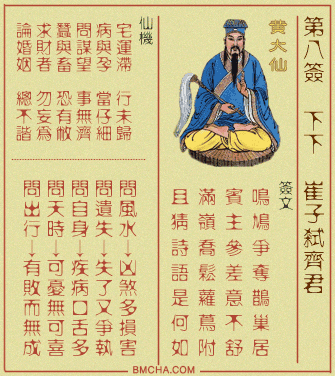 第八簽 下下 崔子弒齊君
黃大仙
簽文
鳴鳩爭奪鵲巢居
賓主參差意不舒
滿嶺喬鬆蘿蔦附
且猜詩語是何如
仙機
宅運滯 行未歸
病與孕 當仔細
問謀望 事無濟
蠶與畜 恐有敝
求財者 勿妄為
論婚姻 總不諧
問風水→凶煞多損害
問遺失→失了又爭執
問自身→疾病口舌多
問天時→可憂無可喜
問出行→有敗而無成
BMCHA.COM